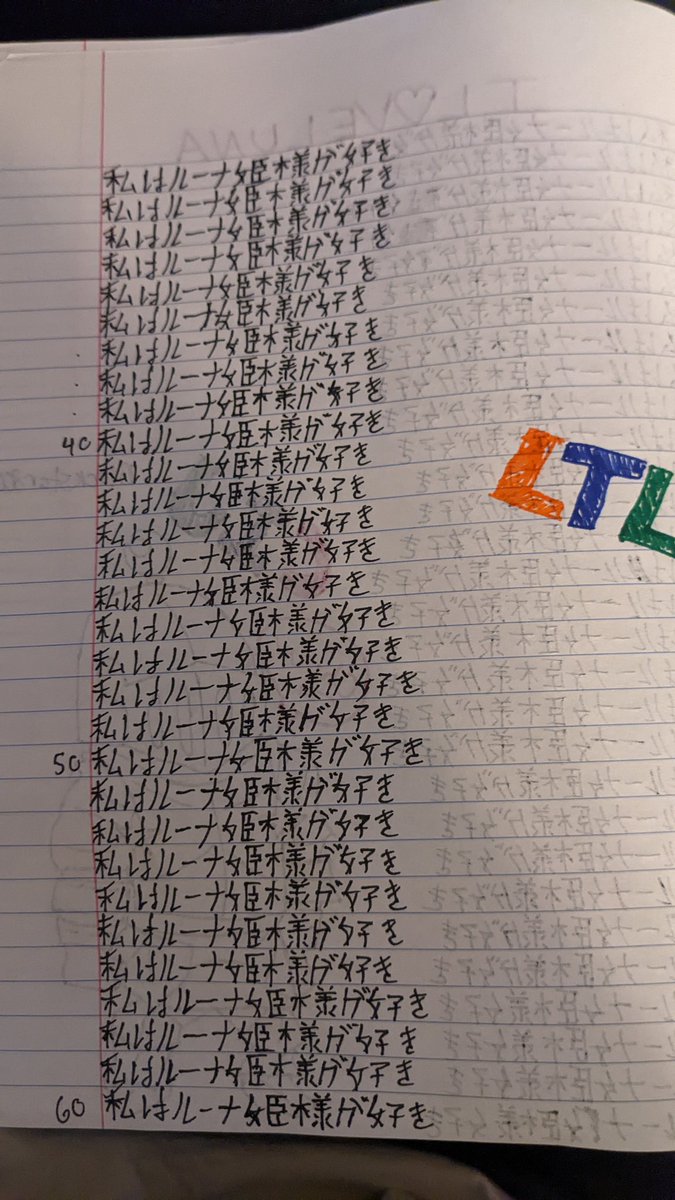 I L♡VE LUNA
私はルーナ姫様が好き
私はルーナ姫様が好き
私はルーナ姫様が好き
私はルーナ姫様が好き
私はルーナ姫様が好き
私はルーナ姫様が好き
私はルーナ姫様が好き
私はルーナ姫様が好き
私はルーナ姫様が好き
40 私はルーナ姫様が好き
私はルーナ姫様が好き
私はルーナ姫様が好き
私はルーナ姫様が好き
私はルーナ姫様が好き
私はルーナ姫様が好き
私はルーナ姫様が好き
私はルーナ姫様が好き
私はルーナ姫様が好き
私はルーナ姫様が好き
50 私はルーナ姫様が好き
私はルーナ姫様が好き
私はルーナ姫様が好き
私はルーナ姫様が好き
私はルーナ姫様が好き
私はルーナ姫様が好き
私はルーナ姫様が好き
私はルーナ姫様が好き
私はルーナ姫様が好き
私はルーナ姫様が好き
60 私はルーナ姫様が好き
LTL